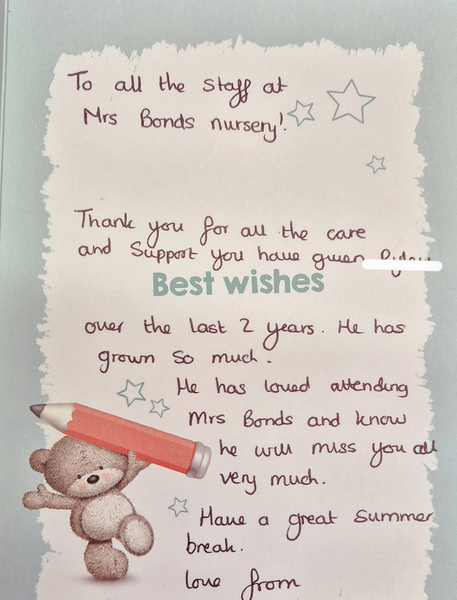 To all the staff at
Mrs Bonds nursery!
Thank you for all the care
and Support you have given
Best wishes
over the last 2 years. He has
grown so much.
He has loved attending
Mrs Bonds and know
he will miss you all
very much.
Have a great summer
break.
love from